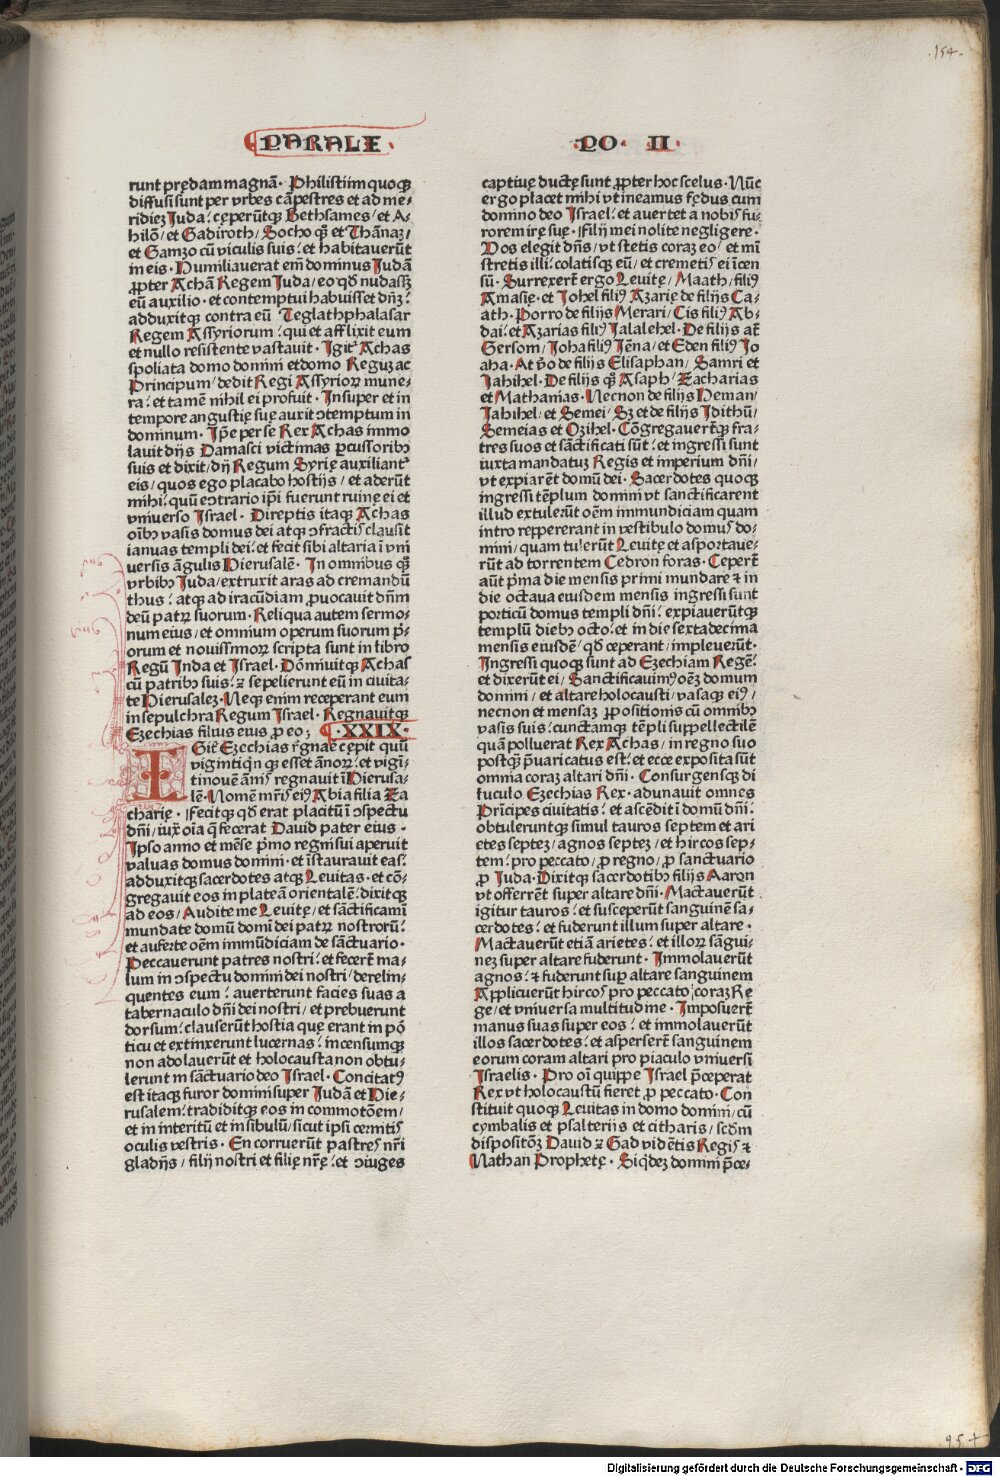 ·154·
PARALE·
·PO· II·
runt prędam magnā· Philistiim quoqꝫ
diffusi sunt per vrbes cāpestres et ad me⸗
ridieʒ Juda: cęperūtqꝫ Bethsames/ et A⸗
hilō/ et Gadiroth/ Socho qꝫ et Thānaʒ/
et Gamzo cū viculis suis: et habitauerūt
in eis· Humiliauerat em̄ dominus Judā
ꝓpter Achā Regem Juda/ eo qđ nudassꝫ
eū auxilio· et contemptui habuisset dn̄ʒ:
adduxitqꝫ contra eū Teglathphalasar
Regem Assyriorum: qui et afflixit eum
et nullo resistente vastauit· Igit᷑ Achas
spoliata domo domini et domo Reguʒ ac
Principum/ dedit Regi Assyrioꝝ mune⸗
ra: et tamē nihil ei profuit· Insuper et in
tempore angustię suę auxit ↄtemptum in
dominum· Ip̄e per se Rex Achas immo
lauit dijs Damasci victimas ꝑcussoribꝫ
suis et dixit/ dij Regum Syrię auxiliant᷑
eis/ quos ego placabo hostijs/ et aderūt
mihi: quū eↄtrario ip̄i fuerunt ruinę ei et
vniuerso Israel· Direptis itaqꝫ Achas
oībꝫ vasis domus dei atqꝫ ↄfractis clausit
ianuas templi dei: et fecit sibi altaria ī vni
uersis āgulis Hierusalē· In omnibus qꝫ
vrbibꝫ Juda/ extruxit aras ad cremandū
thus: atqꝫ ad iracūdiam ꝓuocauit dn̄m
deū patꝝ suorum· Reliqua autem sermo⸗
num eius/ et omnium operum suorum p̄⸗
orum et nouissimoꝝ scripta sunt in libro
Regū Inda et Israel· Dōrmiuitqꝫ Achas
cū patribꝫ suis: ꝛ sepelierunt eū in ciuita⸗
te Hierusaleʒ· Neqꝫ enim receperant eum
in sepulchra Regum Israel· Regnauitqꝫ
Ezechias filius eius ꝓ eo; ·XXIX·
IGit᷑ Ezechias r̄gnāe cępit quū
viginti qīn qꝫ esset ānoꝝ: et vigī⸗
ti nouē ānis regnauit ī Hierusa⸗
lē· Nomē mr̄is eiꝰ Abia filia Za
charię· Fecitqꝫ qđ erat placitū ī ↄspectu
dn̄i/ iux̄ oīa q̄ fecerat Dauid pater eius·
Ipso anno et mēse p̄mo regni sui aperuit
valuas domus domini· et īstaurauit eas:
adduxitqꝫ sacerdotes atqꝫ Leuitas· et cō⸗
gregauit eos in plateā orientalē: dixitqꝫ
ad eos/ Audite me Leuitę/ et sāctificamī
mundate domū domī dei patꝝ nostrorū:
et auferte oēm immūdiciam de sāctuario·
Peccauerunt patres nostri: et fecerūt ma⸗
lum in ↄspectu domini dei nostri/ derelin⸗
quentes eum: auerterunt facies suas a
tabernaculo dn̄i dei nostri/ et prebuerunt
dorsum: clauserūt hostia quę erant in pō
ticu et extinxerunt lucernas: incensumqꝫ
non adolauerūt et holocausta non obtu⸗
lerunt in sāctuario deo Israel· Concitatꝰ
est itaqꝫ furor domini super Judā et Hie⸗
rusalem: tradiditqꝫ eos in commotōem/
et in interitū et in sibulū/ sicut ipsi cernitis
oculis vestris· En corruerūt pastres nr̄i
gladijs/ filij nostri et filię nr̄ę: et ↄiuges
captiuę ductę sunt ꝓpter hoc scelus· Nūc
ergo placet mihi vt ineamus fędus cum
domino deo Israel: et auertet a nobis fu⸗
rorem irę suę· Filij mei nolite negligere·
Vos elegit dn̄s/ vt stetis coraʒ eo/ et mi
nistretis illi: colatisqꝫ eū/ et cremetis ei īcen
sū· Surrexerūt ergo Leuitę/ Maath/ filiꝰ
Amasię· et Johel filiꝰ Azarię de filijs Ca⸗
ath· Porro de filijs Merari/ Cis filiꝰ Ab⸗
dai: et Azarias filiꝰ Jalalehel· De filijs at̄
Gersom/ Joha filiꝰ Jēna/ et Eden filiꝰ Jo
aha· At v̄o de filijs Elisaphan/ Samri et
Jahihel· De filijs qꝫ Asaph/ Zacharias
et Mathanias· Necnon de filijs Heman/
Jahihel/ et Semei/ Sꝫ et de filijs Idithū/
Semeias et Ozihel· Cōgregauerūtqꝫ fra⸗
tres suos et sāctificati sūt: et ingressi sunt
iuxta mandatuʒ Regis et imperium dn̄i/
vt expiarēt domū dei· Sacerdotes quoqꝫ
ingressi tēplum domini vt sanctificarent
illud extulerūt oēm immundiciam quam
intro reppererant in vestibulo domus do⸗
mini/ quam tulerūt Leuitę et asportaue⸗
rūt ad torrentem Cedron foras· Ceperūt
aūt p̄ma die mensis primi mundare ꝛ in
die octaua eiusdem mensis ingressi sunt
porticū domus templi dn̄i: expiauerūtqꝫ
templū diebꝫ octo: et in die sextadecima
mensis eiusdē/ qđ cęperant/ impleuerūt·
Ingressi quoqꝫ sunt ad Ezechiam Regē:
et dixerūt ei/ Sanctificauimꝰ oēʒ domum
domini/ et altare holocausti vasaqꝫ eiꝰ/
necnon et mensaʒ ꝓpositionis cū omnibꝫ
vasis suis: cunctamqꝫ tēpli suppellectilē
quā polluerat Rex Achas/ in regno suo
postqꝫ p̄uaricatus est: et ecce exposita sūt
omnia coraʒ altari dn̄i· Consurgensqꝫ di
luculo Ezechias Rex· adunauit omnes
Prīcipes ciuitatis: et ascēdit ī domū dn̄i:
obtuleruntqꝫ simul tauros septem et ari
etes septeʒ/ agnos septeʒ/ et hircos sep⸗
tem: pro peccato/ ꝓ regno/ ꝓ sanctuario
ꝓ Juda· Dixitqꝫ sacerdotibꝫ filijs Aaron
vt offerrēt super altare dn̄i· Mactauerūt
igitur tauros: et susceperūt sanguinē sa⸗
cerdotes: et fuderunt illum super altare·
Mactauerūt etiā arietes: et illoꝝ sāgui⸗
neʒ super altare fuderunt· Immolauerūt
agnos: ꝛ fuderunt suꝑ altare sanguinem
Applicuerūt hircos pro peccato coraʒ Re
ge/ et vniuersa multitudine· Imposuerūt
manus suas super eos: et immolauerūt
illos sacerdotes: et asperserūt sanguinem
eorum coram altari pro piaculo vniuersi
Israelis· Pro oī quippe Israel p̄ceperat
Rex vt holocaustū fieret ꝓ peccato· Con
stituit quoqꝫ Leuitas in domo domini/ cū
cymbalis et psalterijs et citharis/ scd̄m
dispositōʒ Dauid ꝛ Gad vidētis Regis ꝛ
Nathan Prophetę· Siqđeʒ domini p̄ce⸗
95+
Digitalisierung gefördert durch die Deutsche Forschungsgemeinschaft - DFG